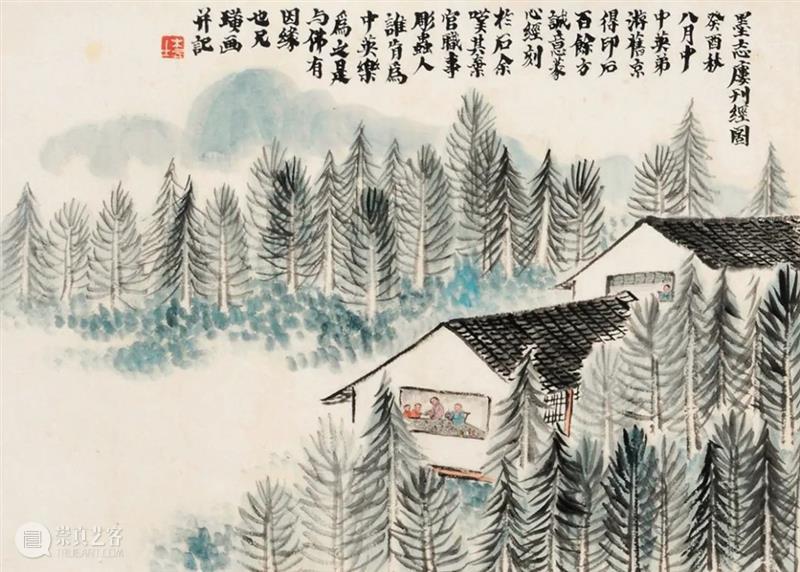 墨志廔刊經圖
癸酉秋
八月中
中英弟
游舊京
得印石
百餘方
誠意篆
心經刻
於石余
嘆其棄
官職事
彫蟲人
誰肯爲
中英樂
爲之是
与佛有
因緣
也兄
璜画
并記
崇真艺客
TRUEART.COM